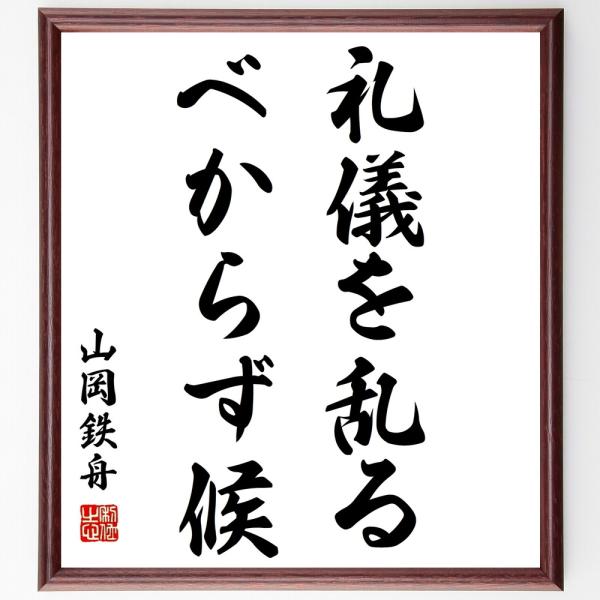 礼儀を乱る
べからず候
山岡鉄舟